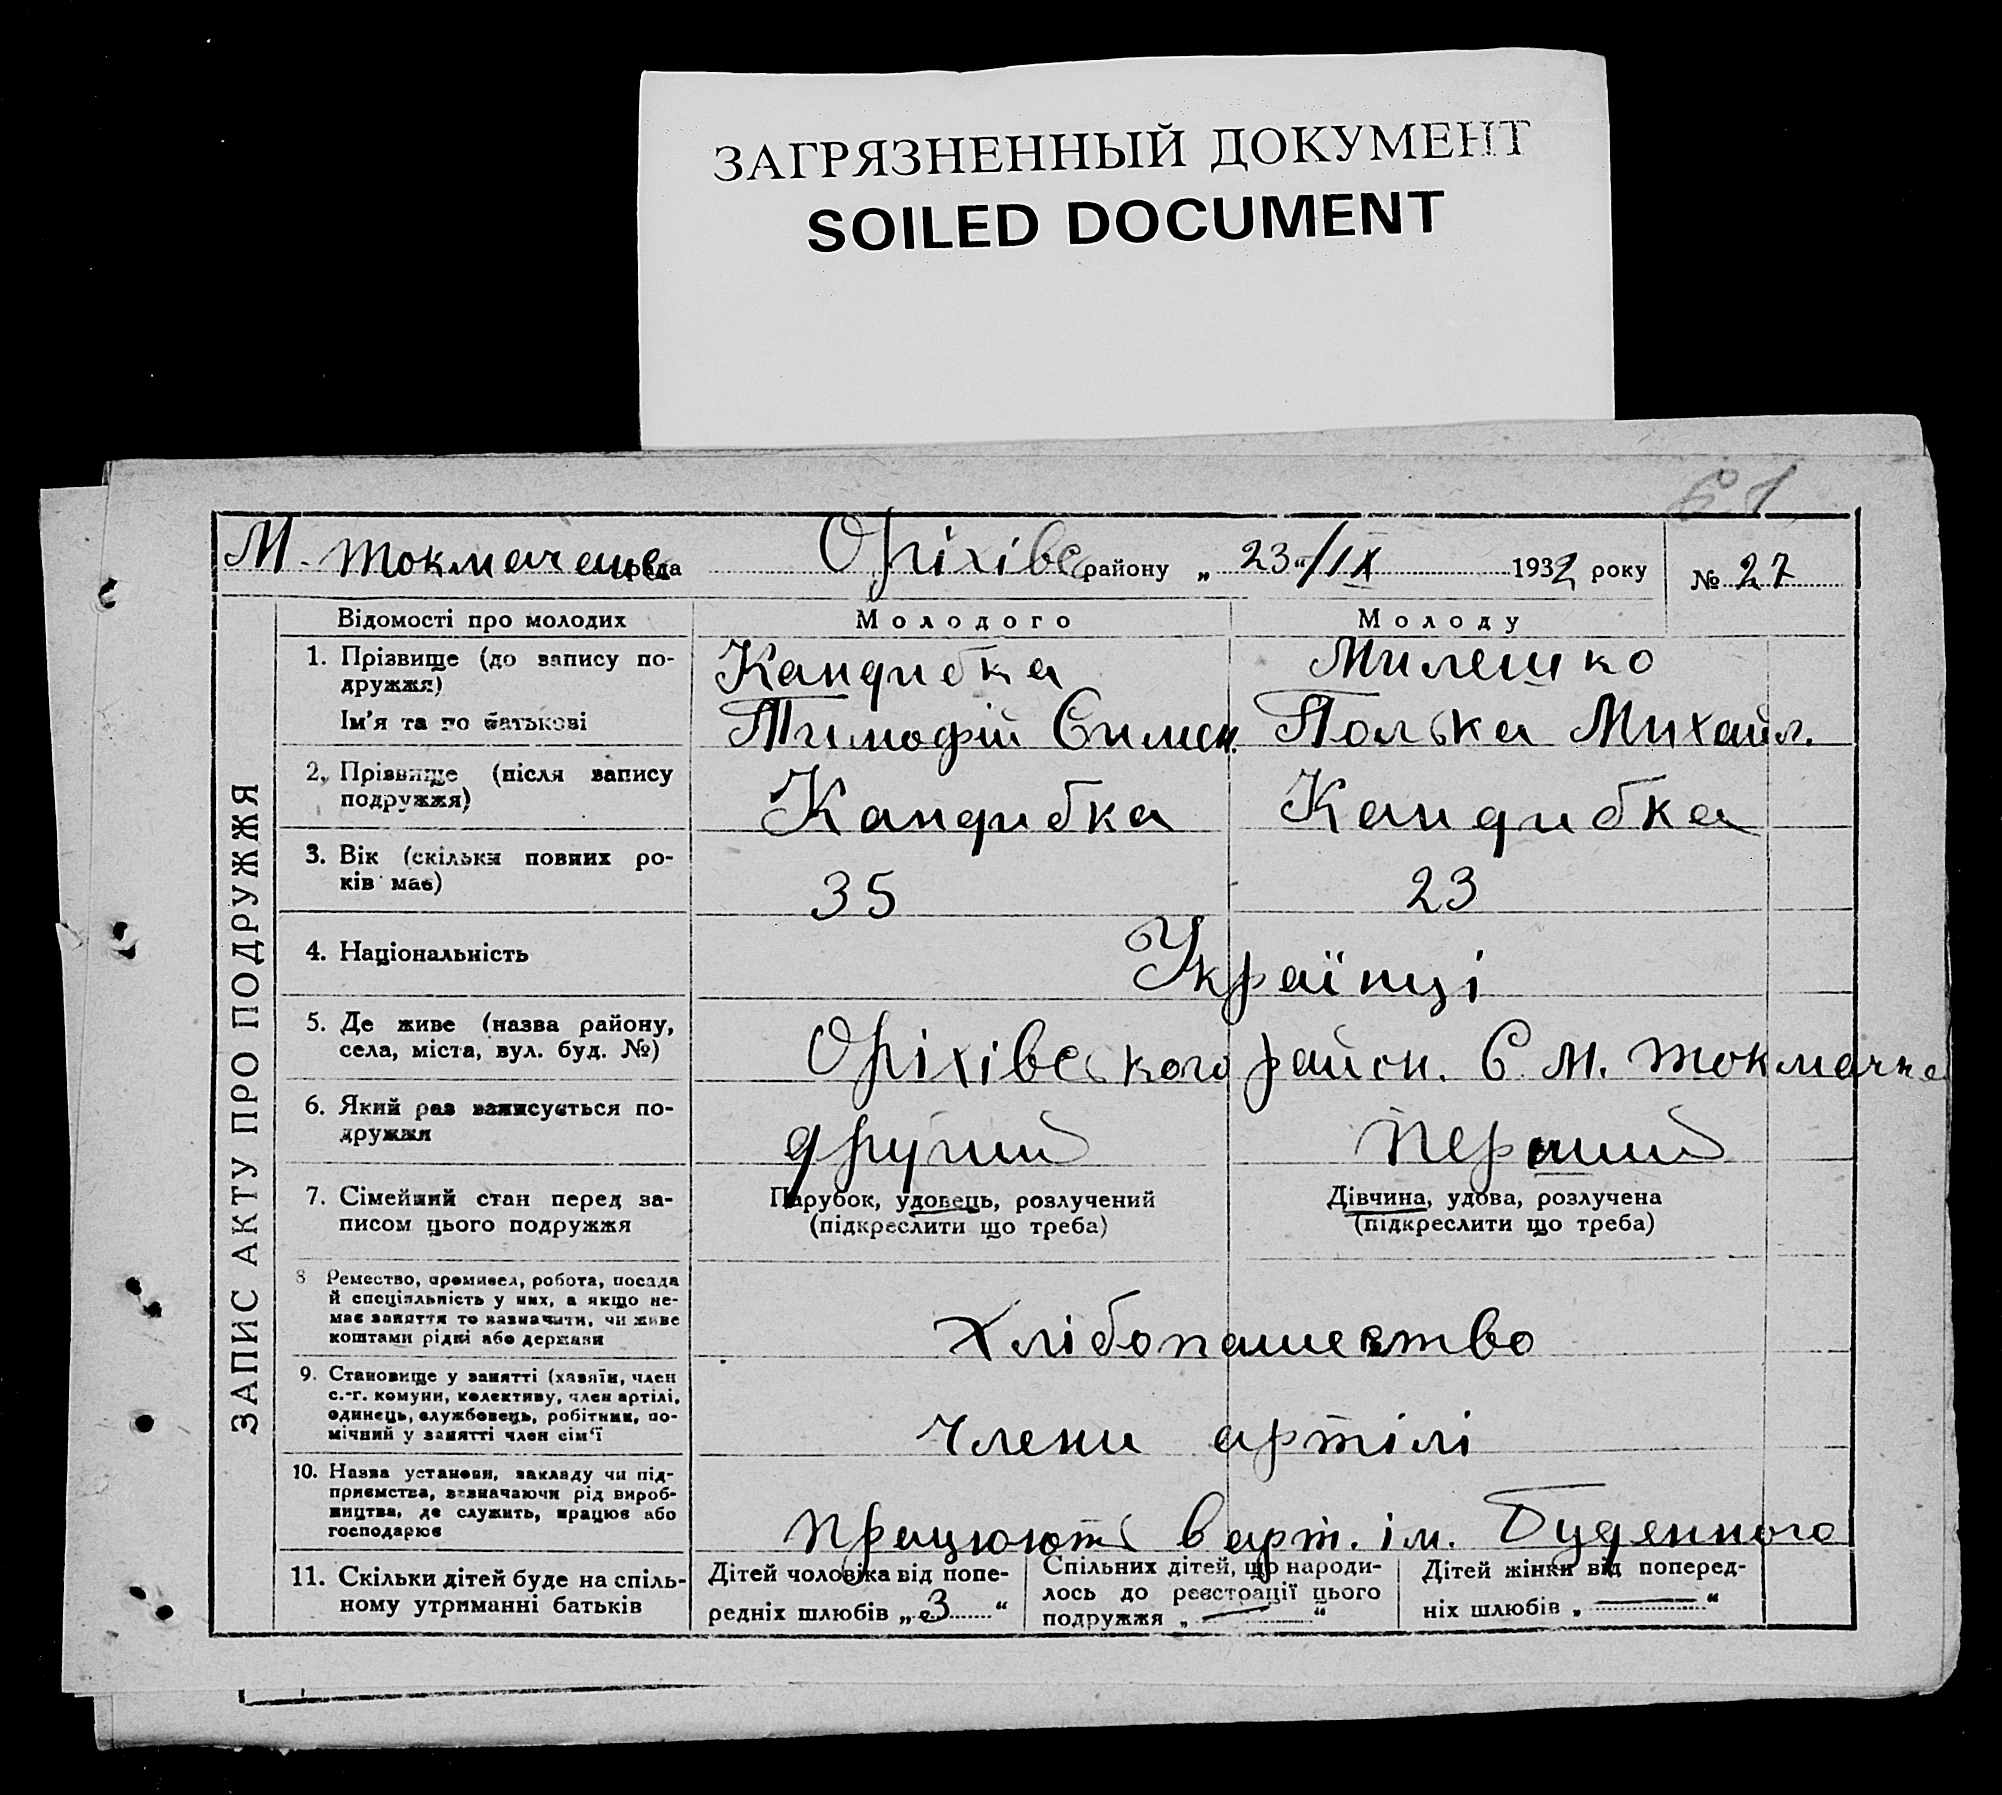 ЗАГРЯЗНЕННЫЙ ДОКУМЕНТ
SOILED DOCUMENT
61
М. Токмачанська рада Оріхівс району „ 23 “/IX 1932 року № 27
ЗАПИС АКТУ ПРО ПОДРУЖЖЯ
Відомості про молодих Молодого Молоду
1. Прізвище (до запису по-
дружжя) Кандибка Милешко
Ім'я та по батькові Тимофій Симон. Полька Михайл.
2. Прізвище (після запису
подружжя) Кандибка Кандибка
3. Вік (скільки повних ро-
ків має) 35 23
4. Національність Українці
5. Де живе (назва району,
села, міста, вул. буд. №) Оріхівського район. С. М. Токмачка
6. Який раз записується по-
дружжя другий перший
7. Сімейний стан перед за- Парубок, удовець, розлучений Дівчина, удова, розлучена
писом цього подружжя (підкреслити що треба) (підкреслити що треба)
8 Ремество, промисел, робота, посада
й спеціяльність у них, а якщо не-
має заняття то зазначити, чи живе
коштами рідні або держави Хлібопашество
9. Становище у занятті (хазяїн, член
с.-г. комуни, колективу, член артілі,
одинець, службовець, робітник, по-
мічний у занятті член сім'ї Члени артілі
10. Назва установи, закладу чи під-
приємства, зазначаючи рід вироб-
ництва, де служить, працює або
господарює працюють в арт. ім. Буденного
11. Скільки дітей буде на спіль-
ному утриманні батьків
Дітей чоловіка від попе-
редніх шлюбів „ 3 “
Спільних дітей, що народи-
лось до реєстрації цього
подружжя „ — “
Дітей жінки від поперед-
ніх шлюбів „ — “